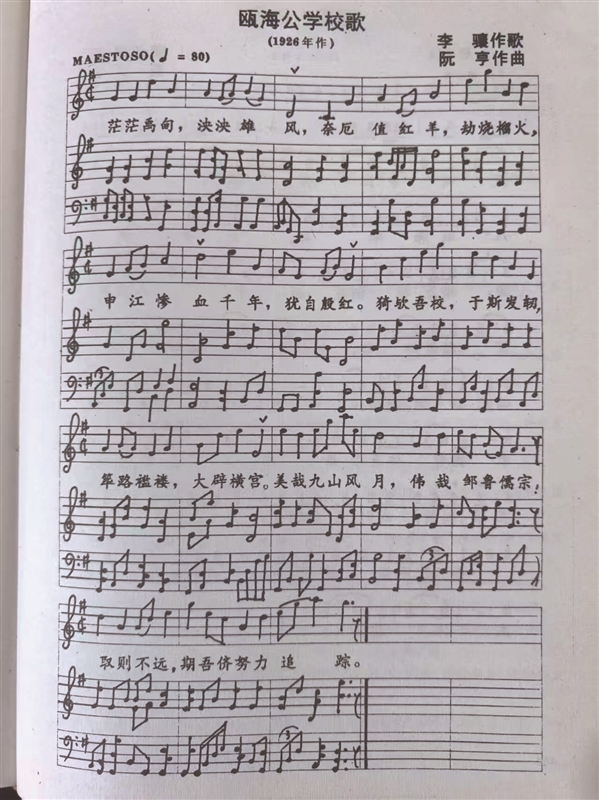 瓯海公学校歌
(1926年作)
MAESTOSO(♩ = 80)
李 骧作歌
阮 亨作曲
茫茫禹甸，泱泱雄 风，奈厄 值红羊，劫烧榴火，
申江惨 血千年，犹自殷红。猗欤吾校，于斯发轫，
筚路褴褛，大辟横宫。美哉九山风月，伟哉 邹鲁儒宗；
取则不远，期吾侪努力 追 踪。